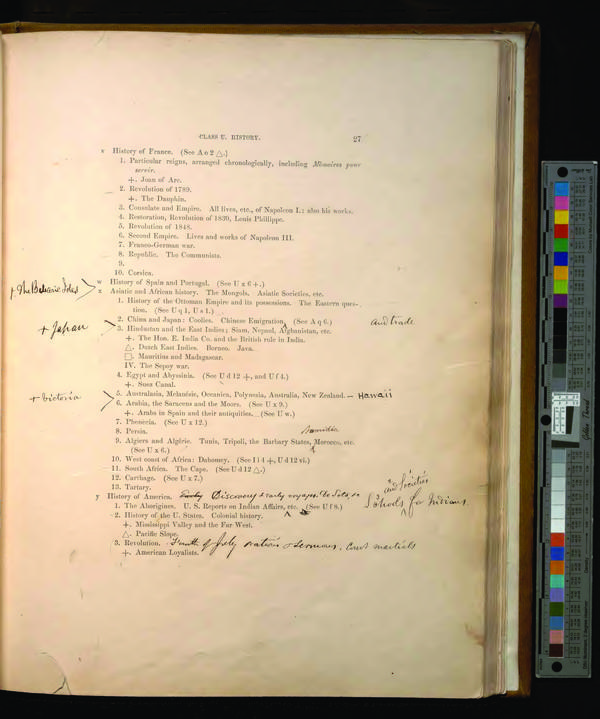 CLASS U. HISTORY. 27
v History of France. (See A o 2 △.)
1. Particular reigns, arranged chronologically, including Mémoires pour
servir.
+. Joan of Arc.
2. Revolution of 1789.
+. The Dauphin.
3. Consulate and Empire. All lives, etc., of Napoleon I.: also his works.
4. Restoration, Revolution of 1830, Louis Phillippe.
5. Revolution of 1848.
6. Second Empire. Lives and works of Napoleon III.
7. Franco-German war.
8. Republic. The Communists.
9.
10. Corsica.
w History of Spain and Portugal. (See U x 6 +.)
+ The Balearic Isles
x Asiatic and African history. The Mongols. Asiatic Societies, etc.
1. History of the Ottoman Empire and its possessions. The Eastern ques-
tion. (See U q 1, U s 1.)
2. China and Japan: Coolies. Chinese Emigration. (See A q 6.) and trade
+ Japan
3. Hindustan and the East Indies; Siam, Nepaul, Afghanistan, etc.
+. The Hon. E. India Co. and the British rule in India.
△. Dutch East Indies. Borneo. Java.
□. Mauritius and Madagascar.
IV. The Sepoy war.
4. Egypt and Abyssinia. (See U d 12 +, and U f 4.)
+. Suez Canal.
5. Australasia, Melanésie, Oceanica, Polynesia, Australia, New Zealand. – Hawaii
+ Victoria
6. Arabia, the Saracens and the Moors. (See U x 9.)
+. Arabs in Spain and their antiquities. (See U w.)
7. Phenecia. (See U x 12.)
8. Persia.
9. Algiers and Algérie. Tunis, Tripoli, the Barbary States, Numidia Morocco, etc.
(See U x 6.)
10. West coast of Africa: Dahomey. (See I i 4 +, U d 12 vi.)
11. South Africa. The Cape. (See U d 12 △.)
12. Carthage. (See U x 7.)
13. Tartary.
y History of America. Early Discovery & early voyages. De Soto,
1. The Aborigines. U. S. Reports on Indian Affairs, etc. (See U f 8.) Schools and Societies for Indians
2. History of the U. States. Colonial history.
+. Mississippi Valley and the Far West.
△. Pacific Slope.
3. Revolution. Fourth of July orations & sermons. Court martials
+. American Loyalists.